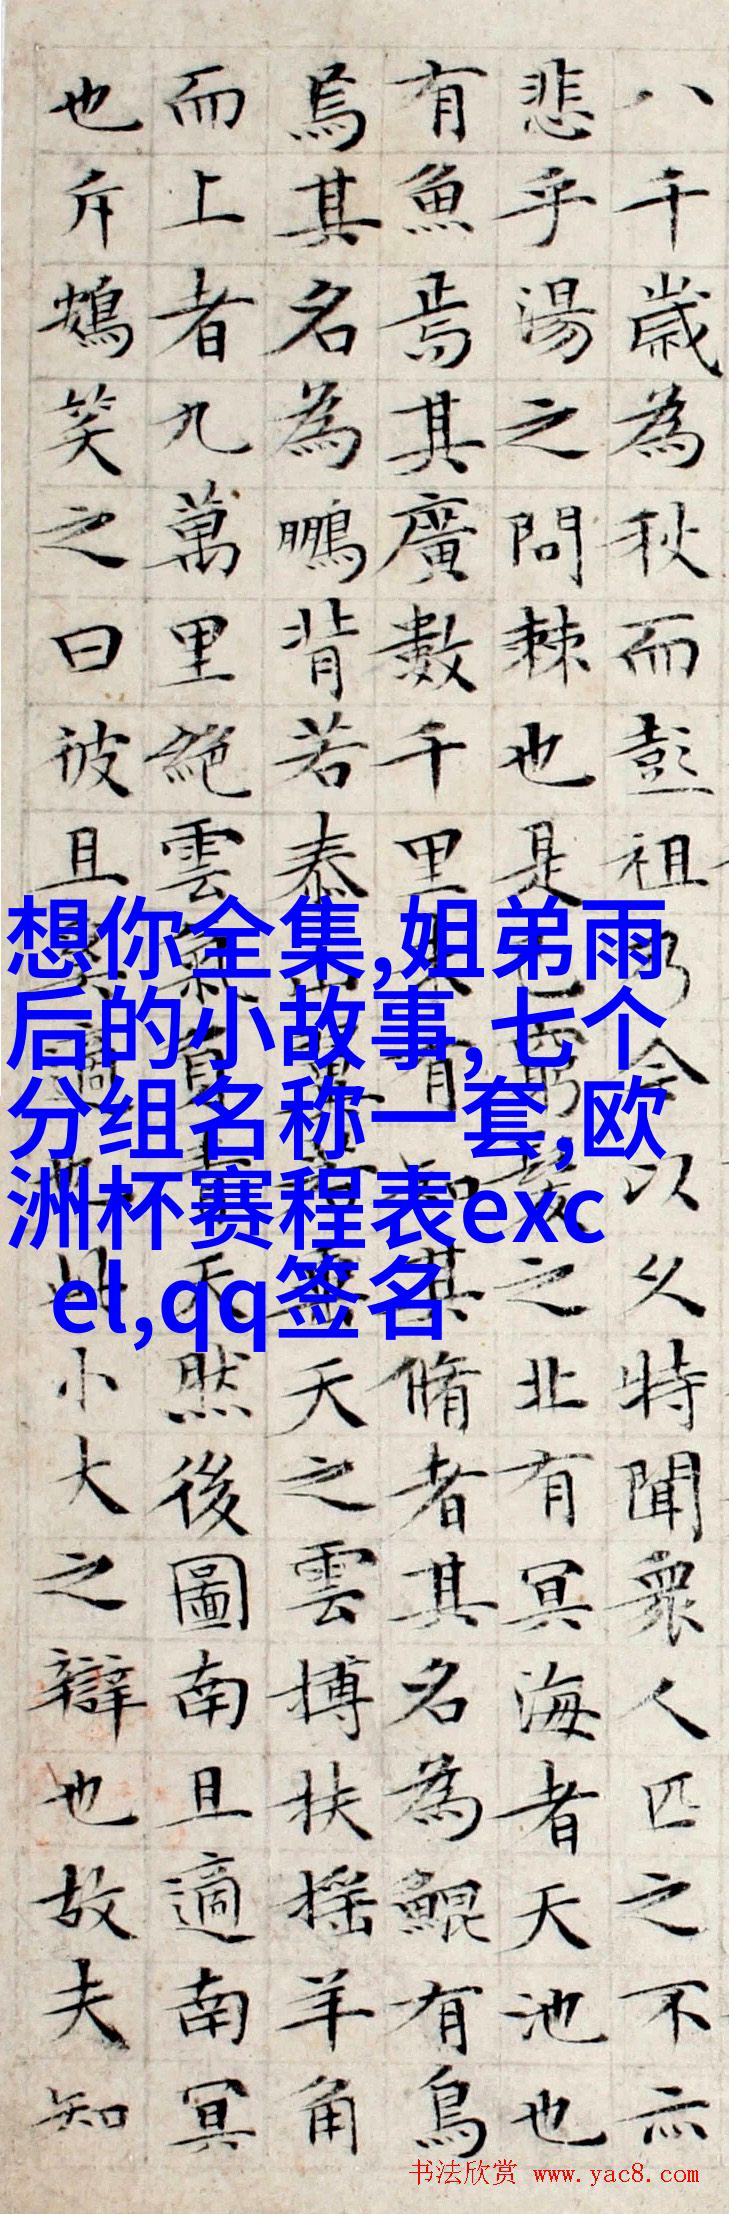 八千歲為秋而彭祖乃今以久特聞衆人匹之不亦
悲乎湯之問棘也是已窮髮之北有冥海者天池也
有魚焉其廣數千里未有知其脩者其名為鯤有鳥
焉其名為鵬背若泰山翼若垂天之雲搏扶搖羊角
而上者九萬里絕雲氣負青天然後圖南且適南冥
也斥鴳笑之曰彼且奚適也此小大之辯也故夫知
想你全集,姐弟雨
后的小故事,七个
分组名称一套,欧
洲杯赛程表exc
el,qq签名
书法欣赏 www.yac8.com